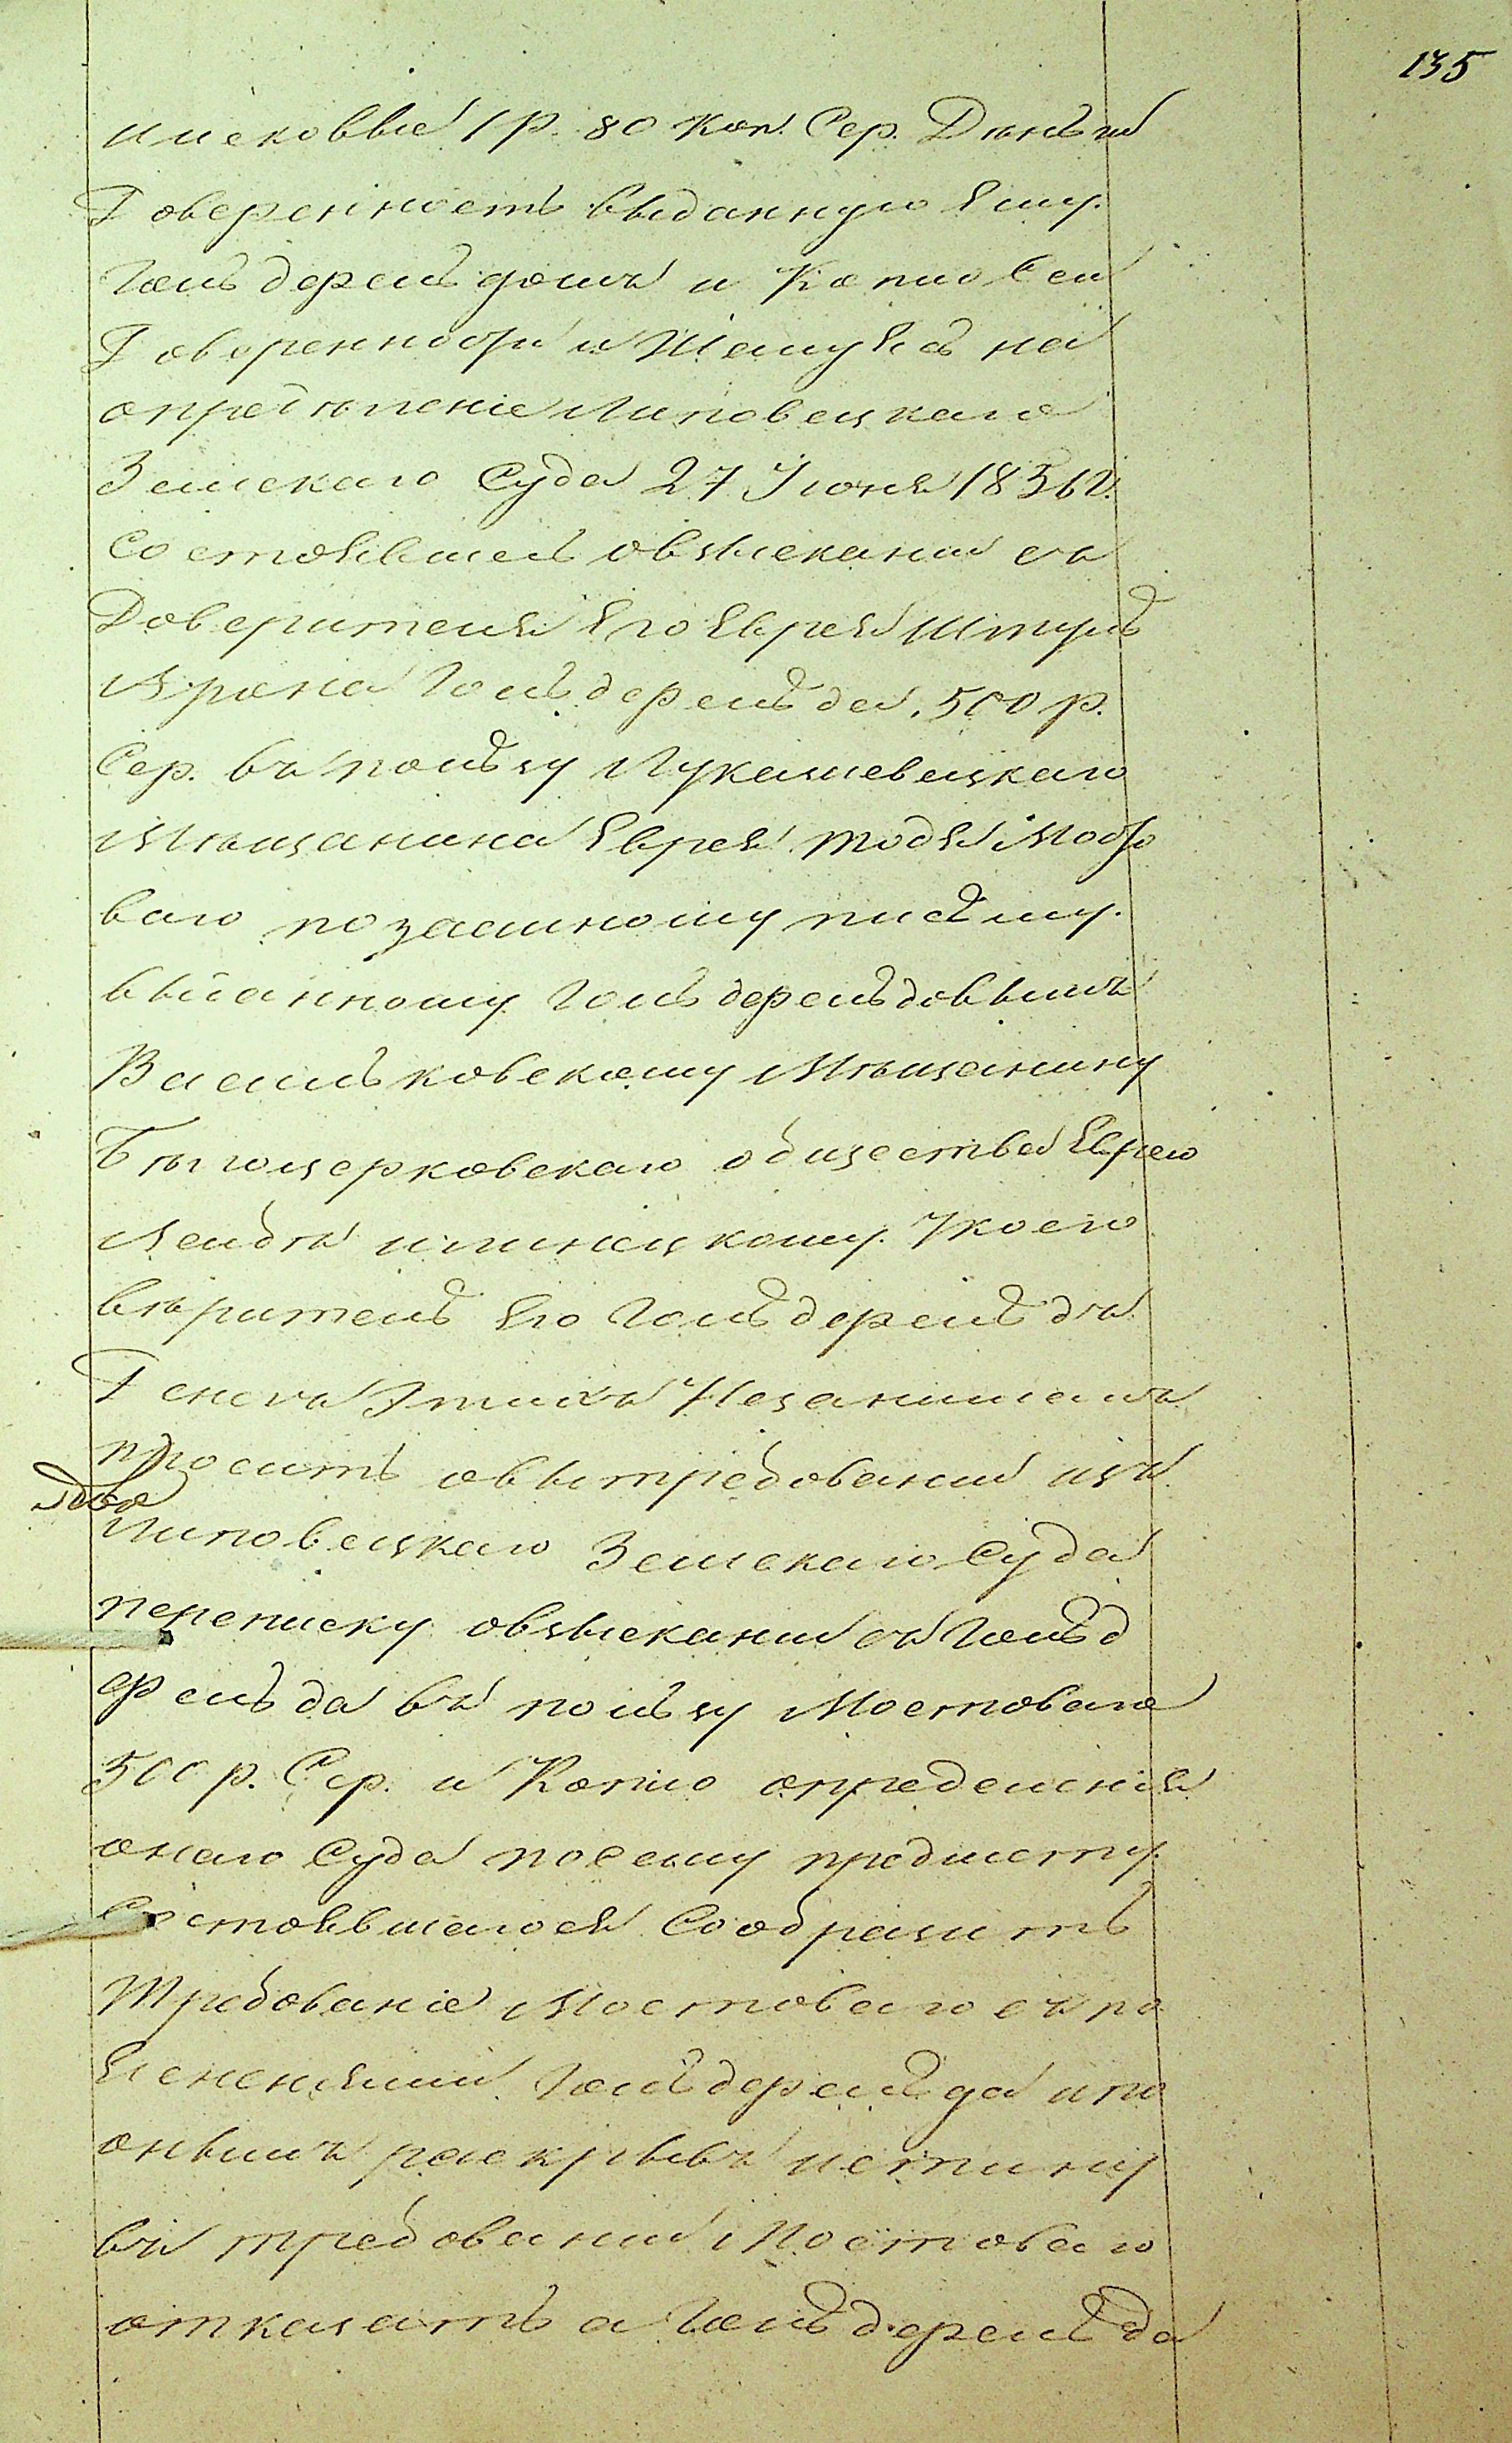 135
исковые 1 р. 80 коп. Сер. Деньги
Доверенность выданную Ему
Гольдерельдомъ и Копію Сей
Доверенности и Жалуетъ на
опредѣленіе Липовецкаго
Земскаго Суда 27 Іюня 1856 г.
Состоявшеесь овзысканіи съ
Доверителя Его Еврея
Арона Гольдерельда, 500 р.
Сер. въ пользу Лукашевецкаго
Мѣщанина Еврея Тодея Мосто
ваго по заемному письму
выданному Гольдерельдовымъ
Васильковскому Мѣщанину
Бѣлоцерковскаго общества Еврею
Лейбѣ Илинецкому. У коего
вѣритель Его Гольдерельдъ
Денегъ этихъ Незанималъ
просить овытребованіи изъ
Липовецкаго Земскаго Суда
переписку овзысканіи съ Гольд
ерельда въ пользу Мостоваго
500 р. Сер. и Копію определенія
онаго Суда посему предмету
Состоявшагося Сообразить
Требованіе Мостоваго съ по
Ясненіями Гольдерельда и по
онымъ раскрывъ истину
въ требованіи Мостоваго
отказать а Гольдерельда